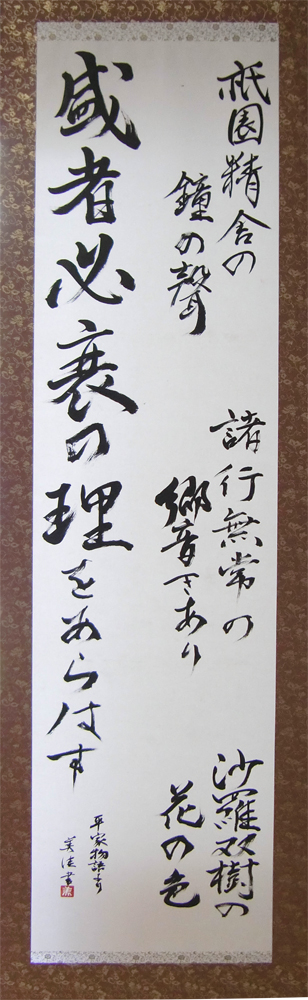 祇園精舎の
鐘の聲
諸行無常の
響きあり
沙羅双樹の
花の色
盛者必衰の理をあらはす
平家物語より